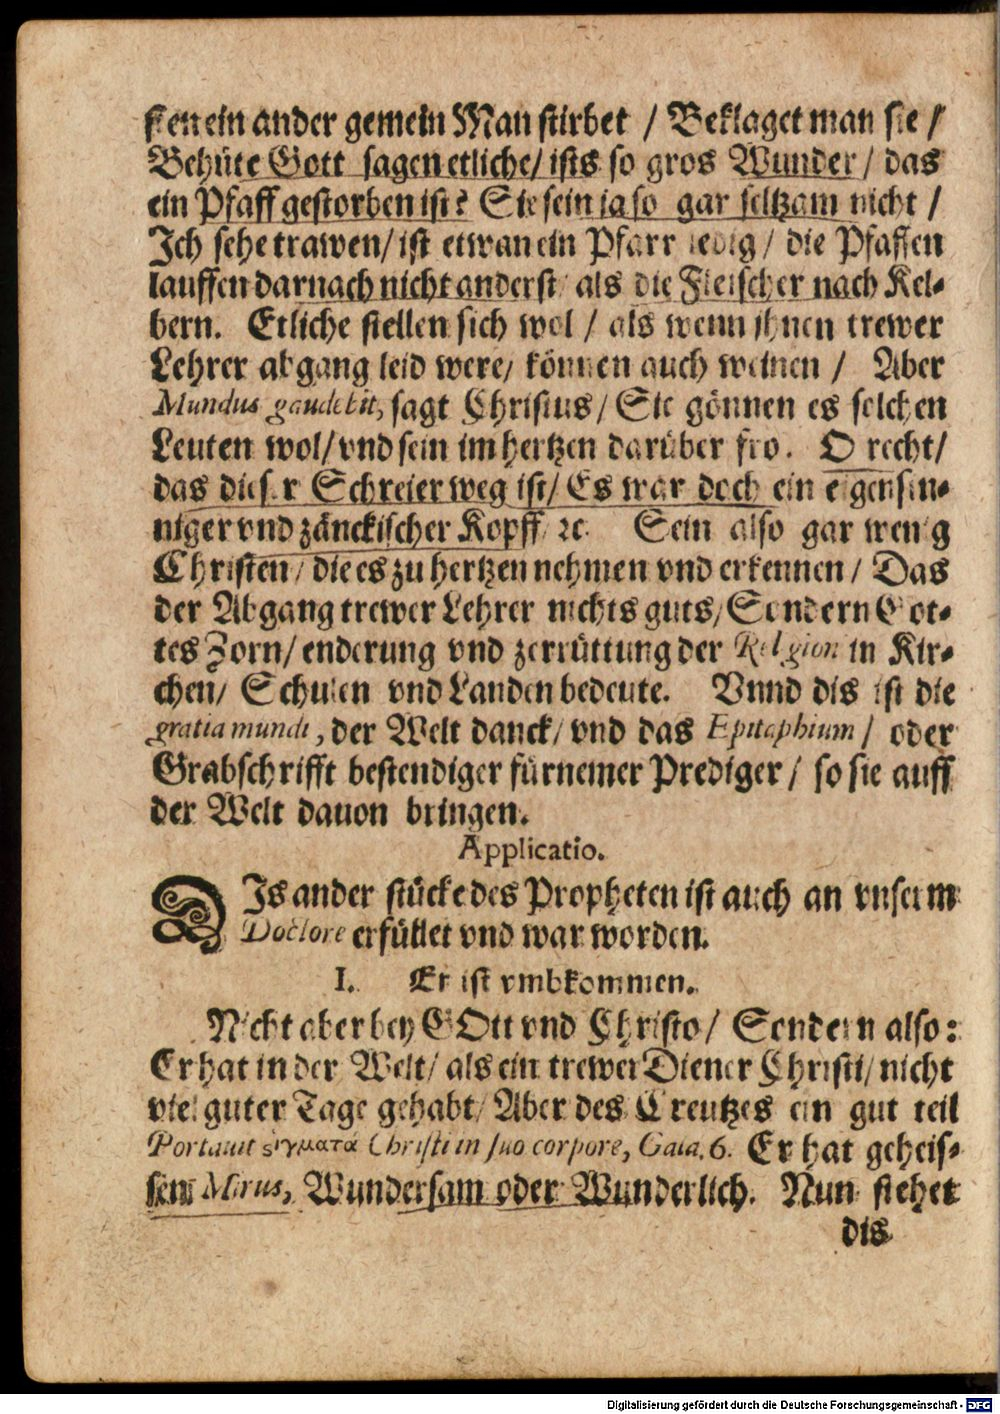 sten ein ander gemein Man stirbet / Beklaget man sie /
Behüte Gott sagen etliche / ists so gros Wunder / das
ein Pfaff gestorben ist? Sie sein ja so gar seltzam nicht /
Ich sehe trawen / ist etwan ein Pfarr ledig / die Pfaffen
lauffen darnach nicht anderst als die Fleischer nach Kel-
bern. Etliche stellen sich wol / als wenn ihnen trewer
Lehrer abgang leid were / können auch weinen / Aber
Mundus gaudebit, sagt Christus / Sie gönnen es solchen
Leuten wol / vnd sein im hertzen darüber fro. O recht /
das dieser Schreier weg ist / Es war doch ein eigensin-
niger vnd zänckischer Kopff / ꝛc. Sein also gar wenig
Christen / die es zu hertzen nehmen vnd erkennen / Das
der Abgang trewer Lehrer nichts guts / Sondern Got-
tes Zorn / enderung vnd zerrüttung der Religion in Kir-
chen / Schulen vnd Landen bedeute. Vnnd dis ist die
gratia mundi, der Welt danck / vnd das Epitaphium / oder
Grabschrifft bestendiger fürnemer Prediger / so sie auff
der Welt dauon bringen.
Applicatio.
DIs ander stücke des Propheten ist auch an vnserm
Doctore erfüllet vnd war worden.
I. Er ist vmbkommen.
Nicht aber bey GOtt vnd Christo / Sondern also:
Er hat in der Welt / als ein trewer Diener Christi / nicht
viel guter Tage gehabt / Aber des Creutzes ein gut teil
Portauit ϛιγματα Christi in suo corpore, Gala. 6. Er hat geheis-
sen Mirus, Wundersam oder Wunderlich. Nun stehet
dis
Digitalisierung gefördert durch die Deutsche Forschungsgemeinschaft - DFG